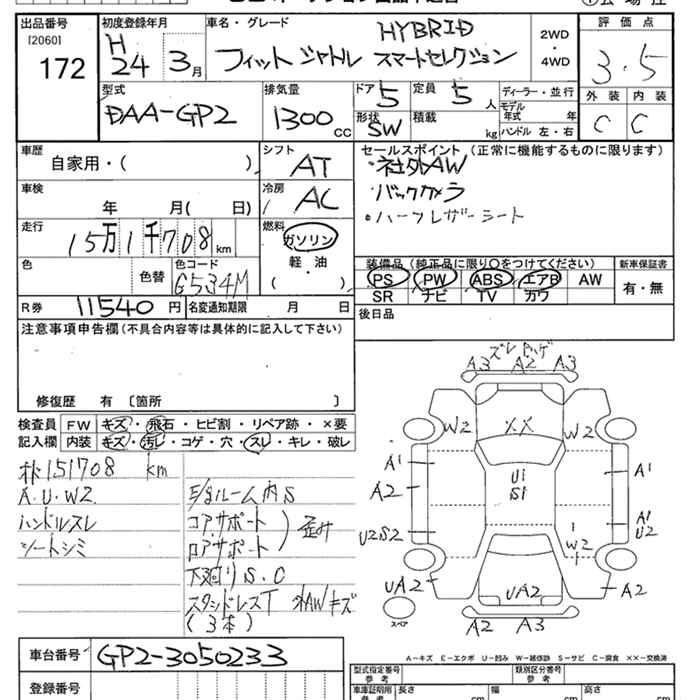 出品番号
[2060]
172
初度登録年月
H
24 3月
車名・グレード
HYBRID
フィットシャトル スマートセレクション
2WD
・
4WD
評価点
3.5
外装 内装
C C
型式
DAA-GP2
排気量
1300 CC
ドア 5
形状 SW
定員 5人
積載 kg
ディーラー・並行
モデル年式 年
ハンドル 左・右
車歴
自家用・( )
シフト
AT
車検
年 月( 日)
冷房
AC
走行
15万1千708km
燃料
ガソリン
軽・油
( )
色
色替
色コード
G534M
R券 11540円
名変通知期限 月 日
セールスポイント (正常に機能するものに限ります)
・社外AW
・バックカメラ
・ハーフレザーシート
装備品 (純正品に限り○をつけてください)
PS PW ABS エアB AW
SR ナビ TV カワ
新車保証書
有・無
後日品
注意事項申告欄(不具合内容等は具体的に記入して下さい)
修復歴 有 〔箇所 〕
検査員記入欄
FW キズ・飛石・ヒビ割・リペア跡・×要
内装 キズ・汚れ・コゲ・穴・スレ・キレ・破レ
151708 km
A.U.W2
ハンドルスレ
シートシミ
E/gルーム内S
コアサポート
ロアサポート
歪み
下廻りS.C
スタッドレスT 外AWキズ
(3本)
ズレ ハゲ
A3 A2 A3
W2 XX W2
A1 A1
A2
U1
S1
A1
U2
U2S2
W2
UA2 UA2 A2
スペア
A2 A3
A-キズ E-エクボ U-凹み W-補修跡 S-サビ C-腐食 ××-交換済
車台番号 GP2-3050233
登録番号
型式指定番号
参考
類別区分番号
参考
車庫証明用
参考
長さ cm
幅 cm
高さ cm